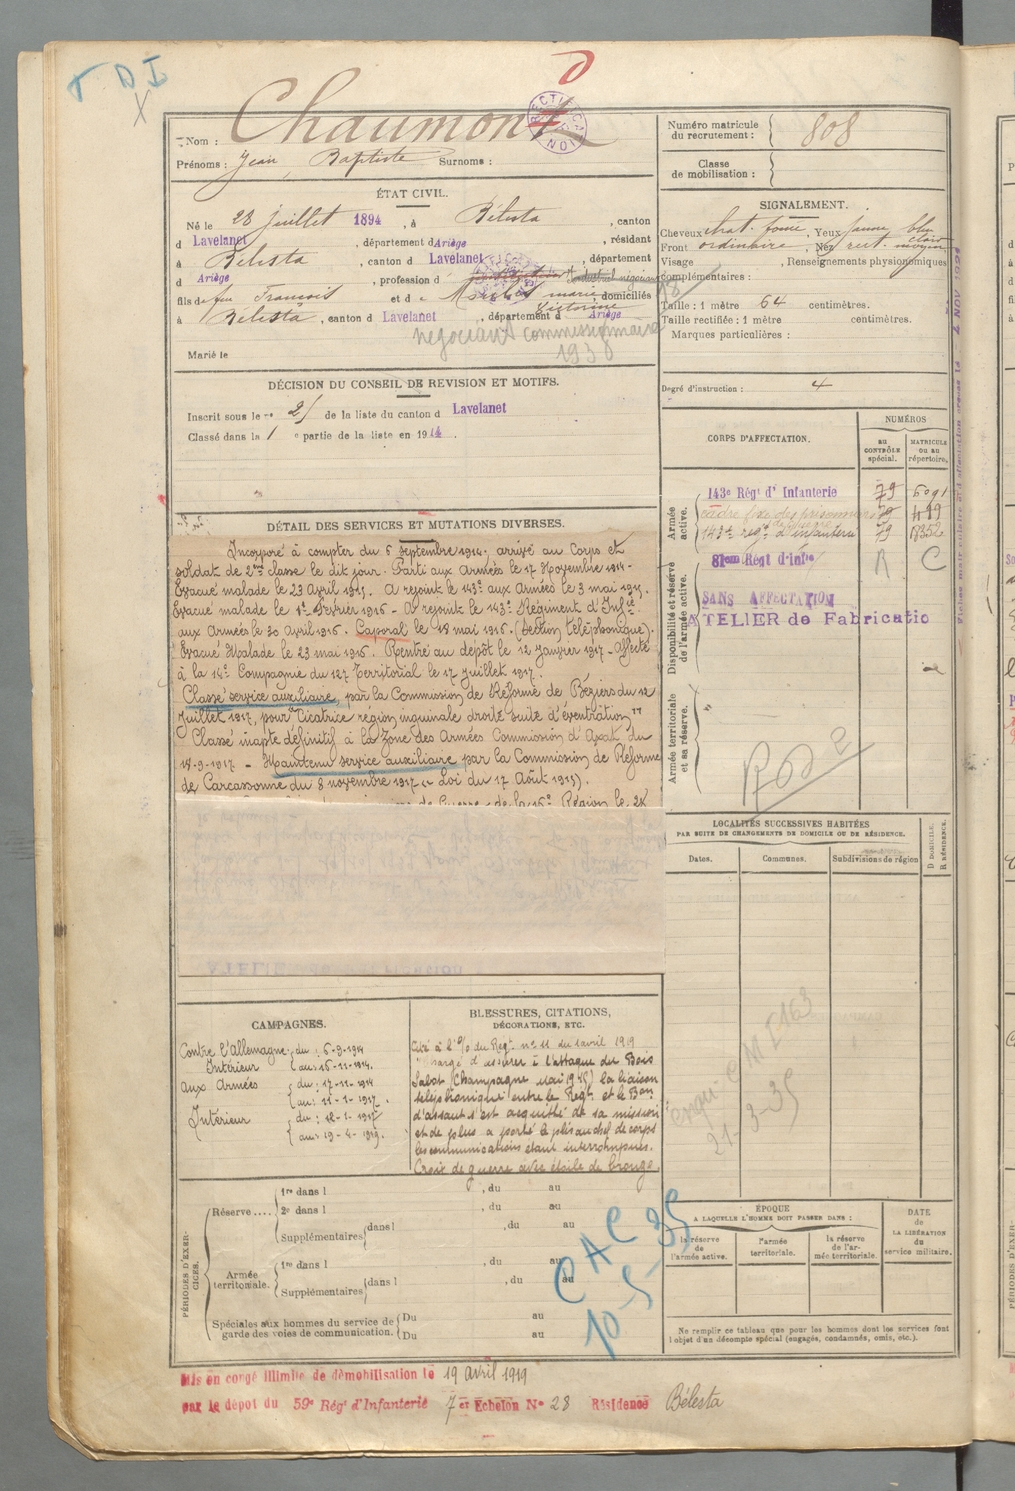 T D I
X
d
Nom : Chaumont
RECTIFICATION
Prénoms : Jean Baptiste Surnoms :
Numéro matricule du recrutement : 808
Classe de mobilisation :
ÉTAT CIVIL.
Né le 28 juillet 1894, à Bélesta, canton
d Lavelanet, département d Ariège, résidant
à Bélesta, canton d Lavelanet, département
d Ariège, profession d négociant
fils de feu François et d e marie domiciliés
Victorine
à Bélesta, canton d Lavelanet, département d Ariège
négociant commissionnaire
1930
Marié le
SIGNALEMENT.
Cheveux chat. foncé, Yeux jaune bleu
clair
Front ordinaire, Nez rect. moyen
Visage , Renseignements physionomiques
complémentaires :
Taille : 1 mètre 64 centimètres.
Taille rectifiée : 1 mètre centimètres.
Marques particulières :
Degré d'instruction : 4
DÉCISION DU CONSEIL DE REVISION ET MOTIFS.
Inscrit sous le no 25 de la liste du canton d Lavelanet
Classé dans la 1 e partie de la liste en 1914.
DÉTAIL DES SERVICES ET MUTATIONS DIVERSES.
Incorporé à compter du 6 septembre 1914. arrivé au Corps et
soldat de 2ème classe le dit jour. Parti aux Armées le 17 Novembre 1914 -
Evacué malade le 23 avril 1915. A rejoint le 143e aux Armées le 3 mai 1915.
Evacué malade le 1er Février 1916 - A rejoint le 143e Régiment d'Infie
aux Armées le 30 Avril 1916. Caporal le 18 mai 1916. (Section téléphonique).
Evacué Malade le 23 mai 1916. Rentré au dépôt le 12 Janvier 1917 - Affecté
à la 14e Compagnie du 127 Territorial le 17 Juillet 1917.
Classé service auxiliaire, par la Commission de Réforme de Béziers du 12
Juillet 1917, pour "Cicatrice région inguinale droite suite d'éventration"
Classé inapte définitif à la Zone des Armées Commission d'Axat du
18-9-1917 - Maintenu service auxiliaire par la Commission de Réforme
de Carcassonne du 8 novembre 1917 (- Loi du 17 Août 1915).
CORPS D'AFFECTATION.
NUMÉROS
AU CONTRÔLE spécial.
MATRICULE OU AU répertoire.
Armée active.
143e Régt d'Infanterie 79 6091
cadre fixe des prisonniers de guerre 79 499
143e regt d'infanterie 79
Disponibilité et réserve de l'armée active.
81eme Regt d'infie R C
SANS AFFECTATION
ATELIER de Fabricatio
Armée territoriale et sa réserve.
LOCALITÉS SUCCESSIVES HABITÉES
PAR SUITE DE CHANGEMENTS DE DOMICILE OU DE RÉSIDENCE.
Dates. Communes. Subdivisions de région D DOMICILE. R RÉSIDENCE.
CMI 163
21-3-35
CAMPAGNES.
Contre l'Allemagne
Intérieur du : 6-9-1914
au : 16-11-1914.
aux Armées du : 17-11-1914
au : 11-1-1917.
Intérieur du : 12-1-1917
au : 19-4-1919.
BLESSURES, CITATIONS,
DÉCORATIONS, ETC.
Cité à l'O/ du Regt no 11 du 1 avril 1919
"Chargé d'assurer à l'attaque du Bois
Sabot (Champagne Mai 1915) la liaison
téléphonique entre le Regt et le Bon
d'assaut s'est acquitté de sa mission
et de plus a porté le plis au chef de corps
les communications étant interrompues.
Croix de guerre avec étoile de bronze
PÉRIODES D'EXERCICES.
Réserve.... 1re dans l , du au
2e dans l , du au
Supplémentaires dans l , du au
Armée territoriale. 1re dans l , du au
Supplémentaires dans l , du au
Spéciales aux hommes du service de garde des voies de communication. Du au
Du au
CAC 35
10-5
ÉPOQUE
A LAQUELLE L'HOMME DOIT PASSER DANS :
la réserve de l'armée active.
l'armée territoriale.
la réserve de l'armée territoriale.
DATE de LA LIBÉRATION du service militaire.
Ne remplir ce tableau que pour les hommes dont les services font
l'objet d'un décompte spécial (engagés, condamnés, omis, etc.).
Mis en congé illimité de démobilisation le 19 avril 1919
par le dépot du 59e Régt d'Infanterie 7 er Echelon No 28 Résidence Bélesta